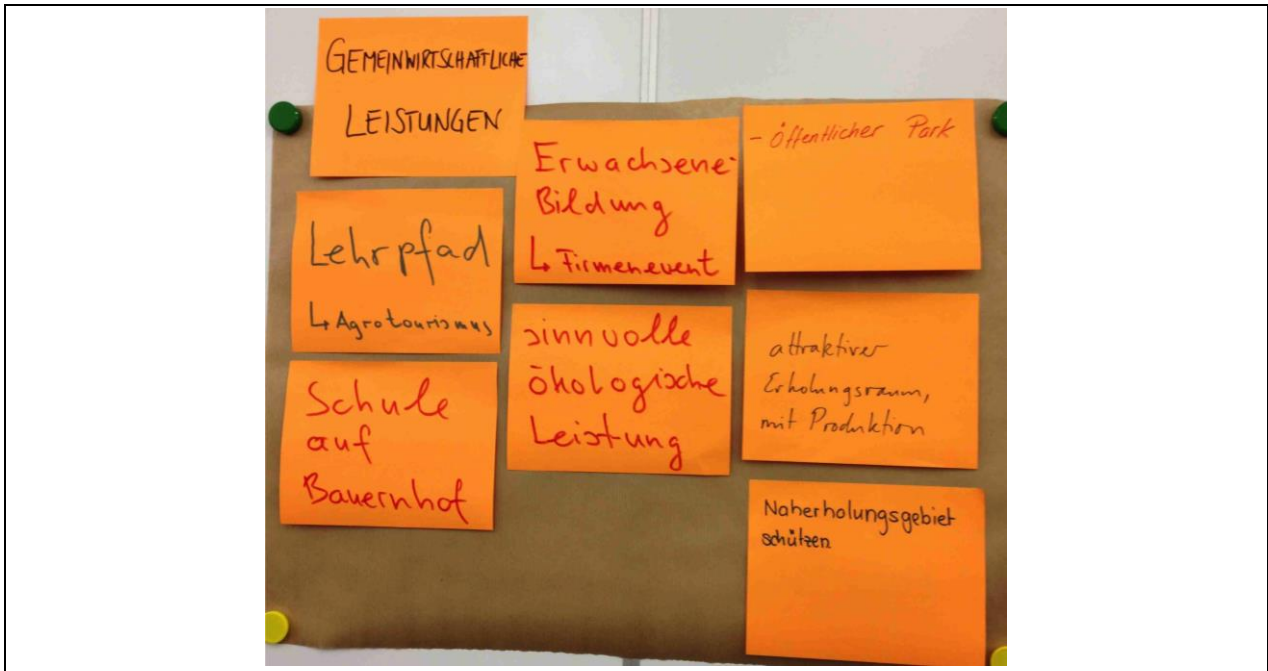 GEMEINWIRTSCHAFTLICHE
LEISTUNGEN
Lehrpfad
↳ Agrotourismus
Schule
auf
Bauernhof
Erwachsene-
Bildung
↳ Firmenevent
sinnvolle
ökologische
Leistung
- öffentlicher Park
attraktiver
Erholungsraum,
mit Produktion
Naherholungsgebiet
schützen